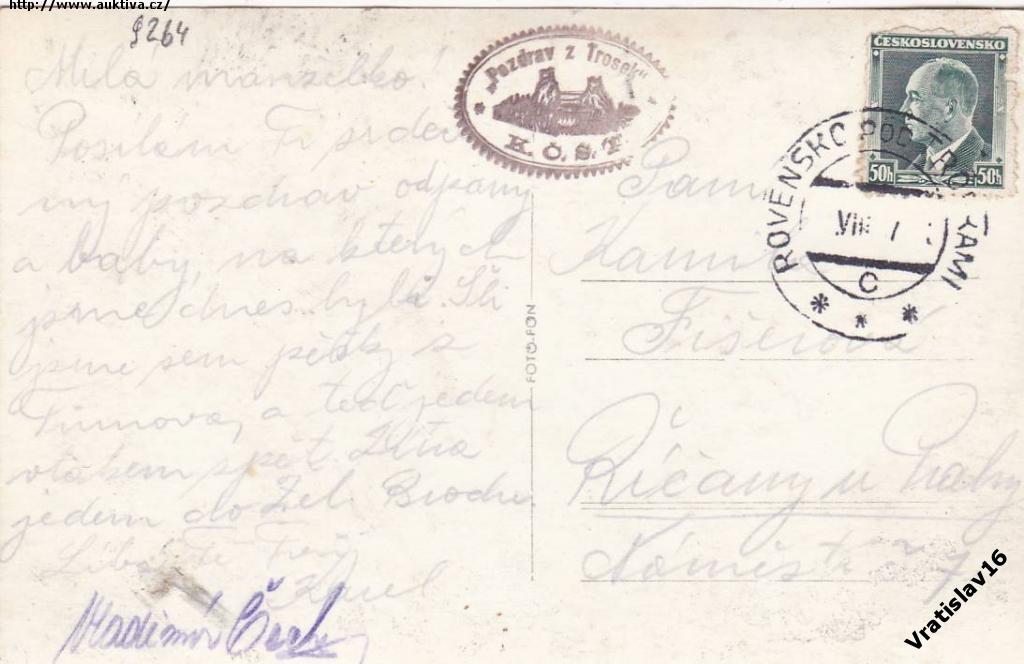 http://www.auktiva.cz/
9264
Milá manželko!
Posílám Ti srdeč
ný pozdrav od pany
a baby, na kterých
jsme dnes byli. Šli
jsme sem pěšky z
Turnova, a teď jedem
vlakem zpět. Zítra
jedem do Žel. Brodu.
Líbá Tě Tvůj
Karel
Vladimír
"Pozdrav z Trosek"
K.Č.S.T.
FOTO-FON
ČESKOSLOVENSKO
50h 50h
ROVENSKO POD TROSKAMI
VIII 7
C
Paní
Kamila
Fišerová
Říčany u Prahy
Náměstí 7
Vratislav16